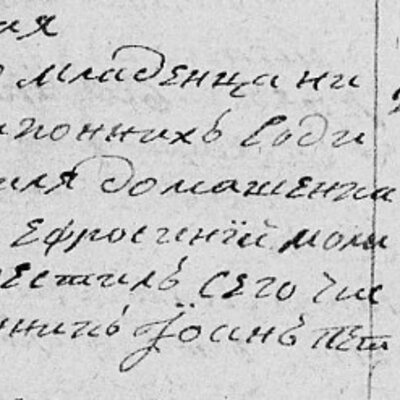 ая
младенца ни
конныхъ роди
ила домашенка
Ефросинїй моли
рестилъ сего чис
нникъ Їоаннъ Пет